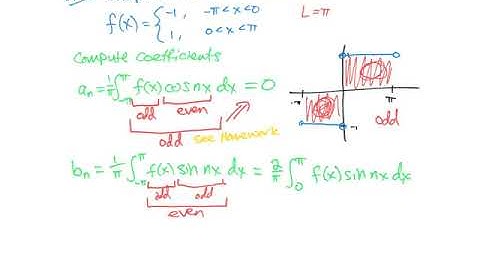 f(x) = { -1, -π < x < 0
1, 0 < x < π
L = π
Compute Coefficients
a_n = 1/π ∫_{-π}^{π} f(x) cos nx dx = 0
odd even
odd see Homework
-π π
-1
odd
b_n = 1/π ∫_{-π}^{π} f(x) sin nx dx = 2/π ∫_0^π f(x) sin nx dx
odd odd
even